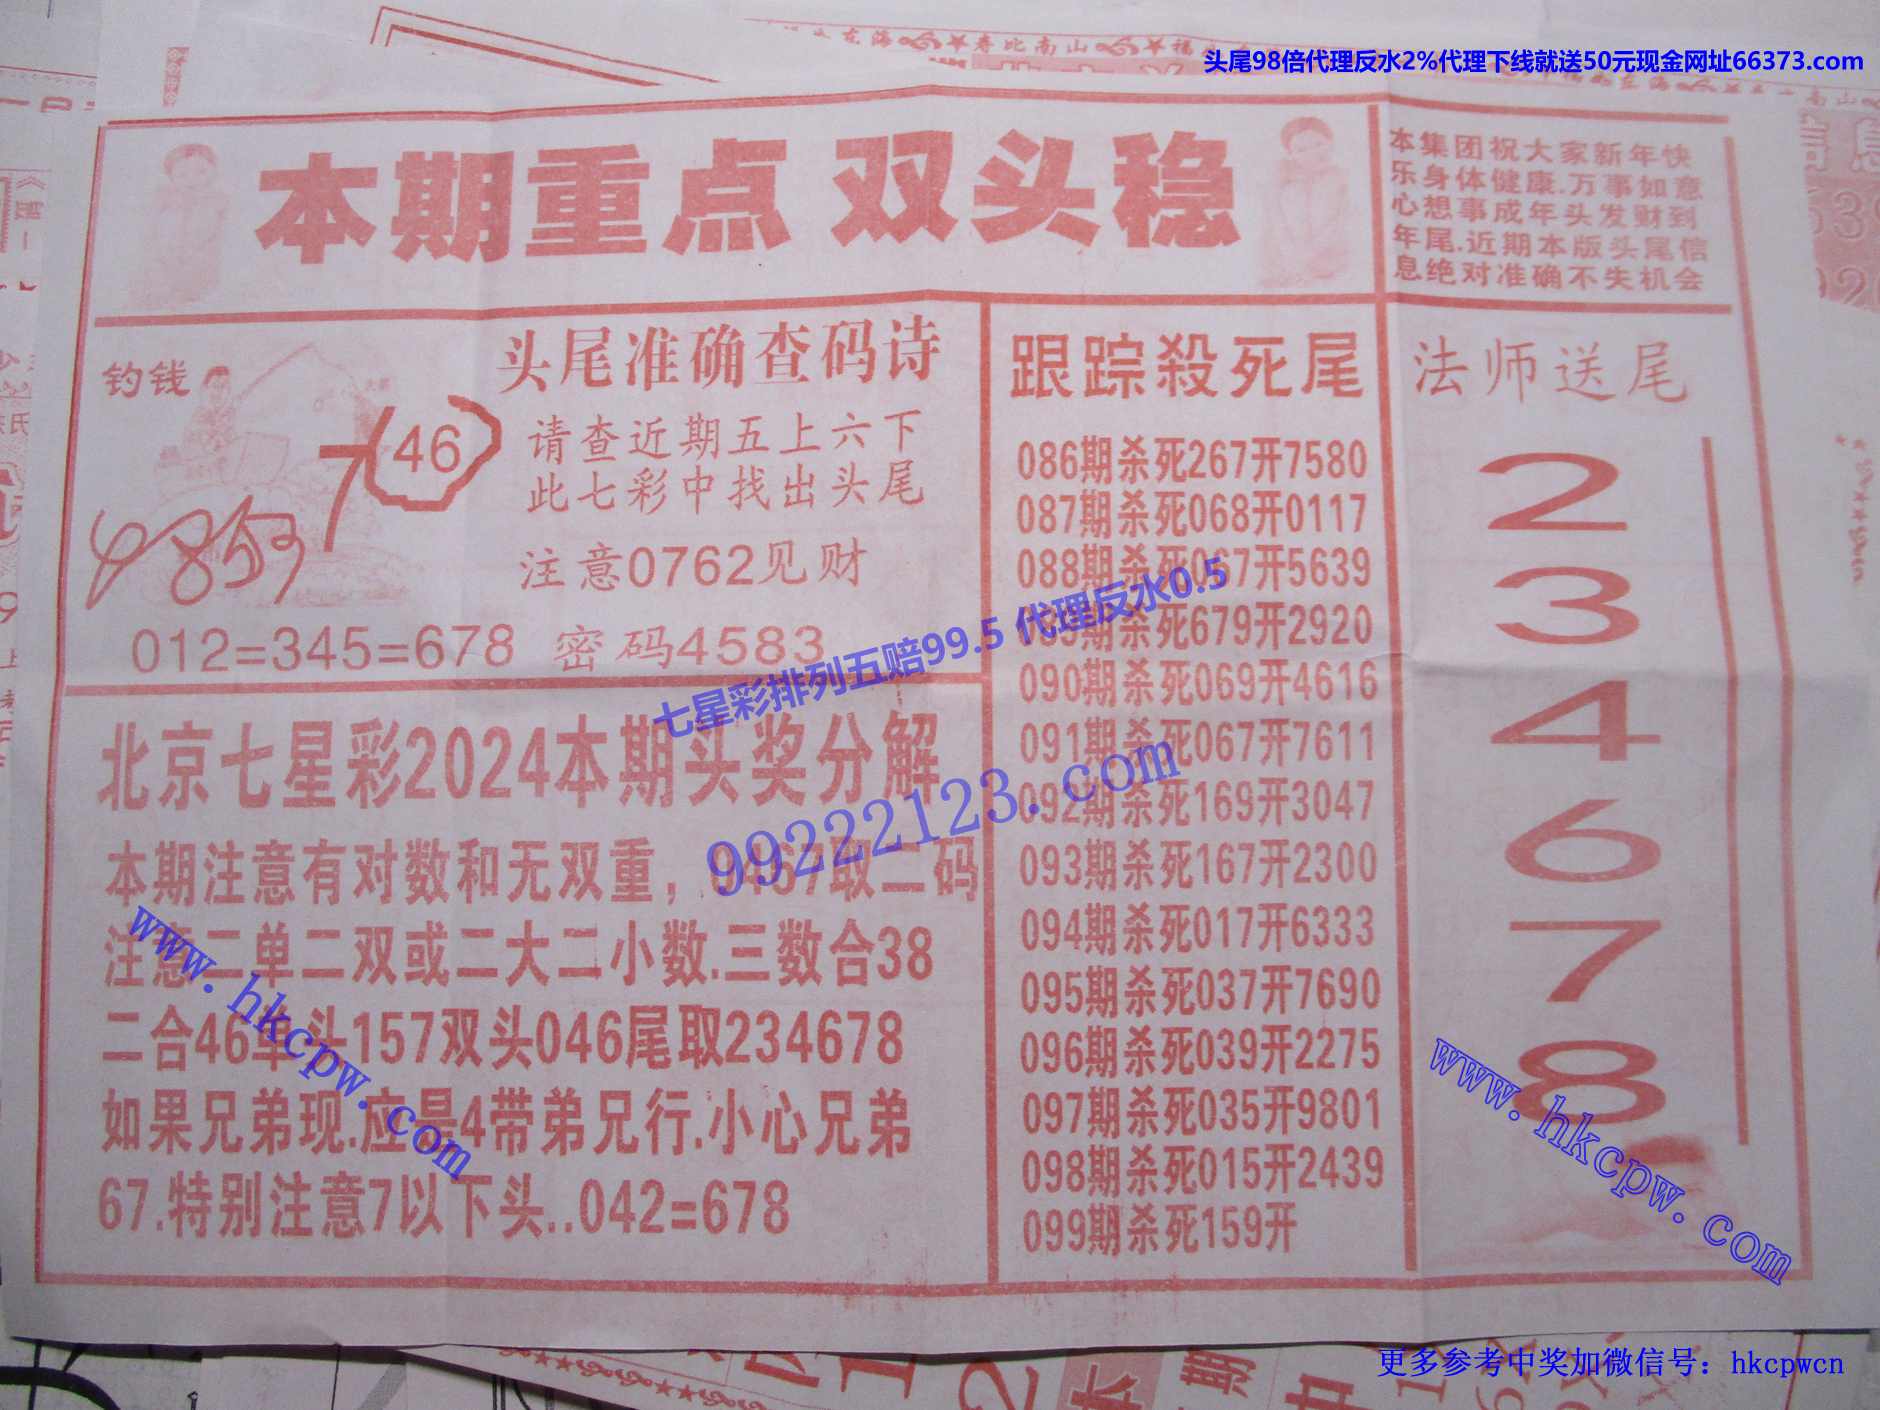 头尾98倍代理反水2%代理下线就送50元现金网址66373.com
本期重点 双头稳
本集团祝大家新年快
乐身体健康.万事如意
心想事成年头发财到
年尾.近期本版头尾信
息绝对准确不失机会
钓钱
46
7
头尾准确查码诗
请查近期五上六下
此七彩中找出头尾
注意0762见财
012=345=678 密码4583
跟踪殺死尾
086期杀死267开7580
087期杀死068开0117
088期杀死067开5639
089期杀死679开2920
090期杀死069开4616
091期杀死067开7611
092期杀死169开3047
093期杀死167开2300
094期杀死017开6333
095期杀死037开7690
096期杀死039开2275
097期杀死035开9801
098期杀死015开2439
099期杀死159开
法师送尾
2
3
4
6
7
8
七星彩排列五赔99.5 代理反水0.5
99222123.com
北京七星彩2024本期头奖分解
本期注意有对数和无双重，0467取二码
注意二单二双或二大二小数.三数合38
二合46单头157双头046尾取234678
如果兄弟现.应是4带弟兄行.小心兄弟
67.特别注意7以下头..042=678
www.hkcpw.com
www.hkcpw.com
更多参考中奖加微信号：hkcpwcn